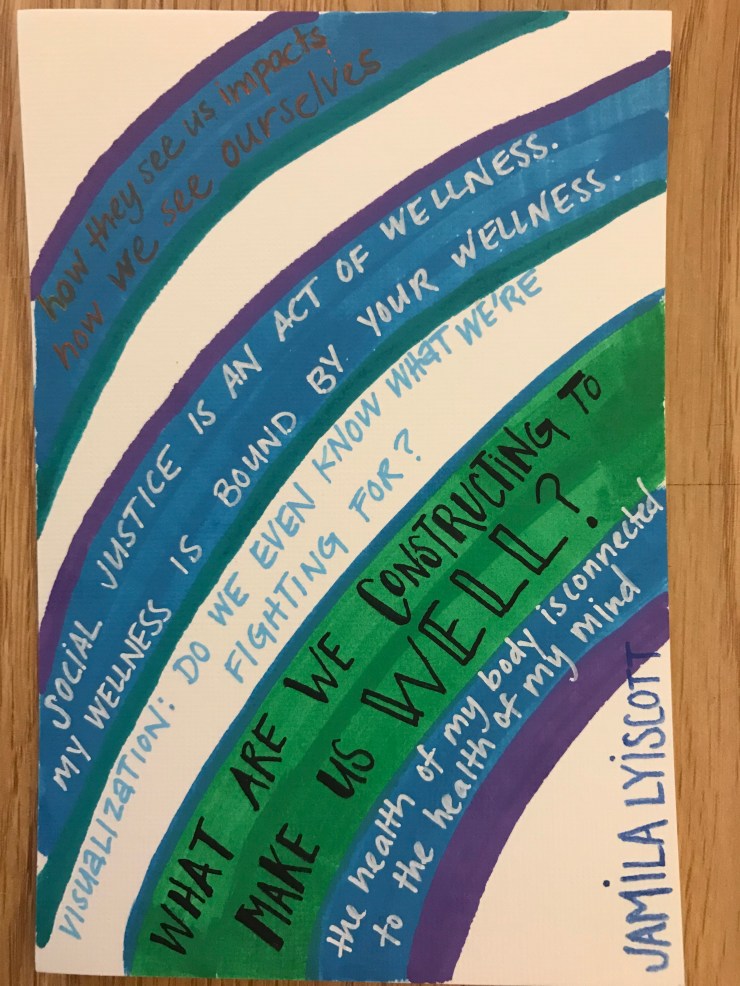 how they see us impacts
how we see ourselves
SOCIAL JUSTICE IS AN ACT OF WELLNESS.
MY WELLNESS IS BOUND BY YOUR WELLNESS.
VISUALIZATION: DO WE EVEN KNOW WHAT WE'RE
FIGHTING FOR?
WHAT ARE WE CONSTRUCTING TO
MAKE US WELL?
the health of my body is connected
to the health of my mind
JAMILA LYISCOTT